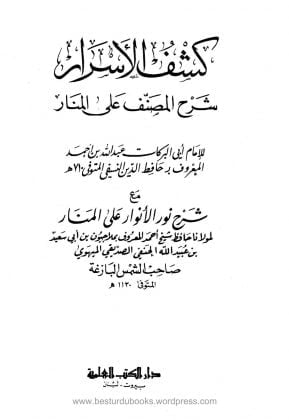 كشف الأسرار
شرح المصنف على المنار
للإمام أبي البركات عبد الله بن أحمد
المعروف بحافظ الدين النسفي المتوفى ٧١٠ هـ
مع
شرح نور الأنوار على المنار
لمولانا حافظ شيخ أحمد المعروف بملاجيون بن أبي سعيد
بن عبيد الله الحنفي الصديقي الميهوي
صاحب الشمس البازغة
المتوفى ١١٣٠ هـ
دار الكتب العلمية
بيروت - لبنان
www.besturdubooks.wordpress.com